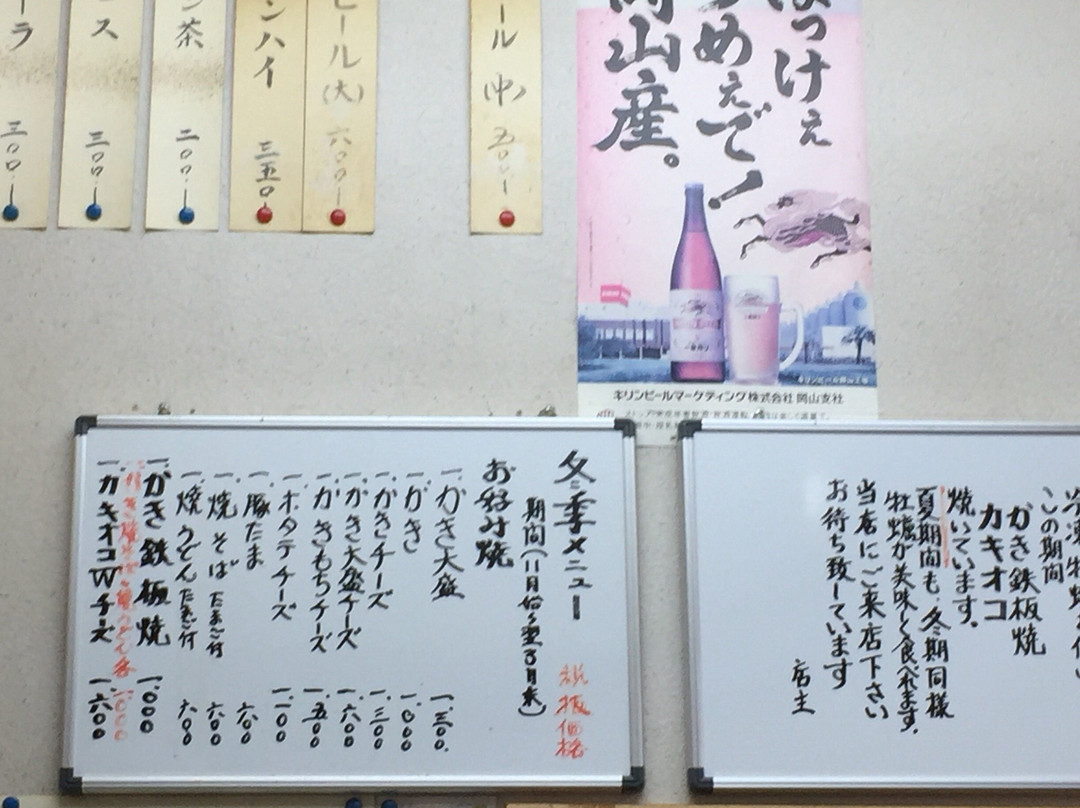 ール(中) 五〇〇
ール(大) 六〇〇
ンハイ 三五〇
茶 二〇〇
ス 三〇〇
ラ 三〇〇
けぇ
めぇで!
岡山産。
キリンビールマーケティング株式会社 岡山支社
この期間
かき鉄板焼
カキオコ
焼いています。
夏期間も、冬期同様
牡蠣が美味しく食べれます。
当店にご来店下さい
お待ち致しています
店主
冬季メニュー 税抜価格
期間(11月始〜翌3月末)
お好み焼
一.かき大盛 一.三〇〇
一.かき 一.〇〇〇
一.かきチーズ 一.三〇〇
一.かき大盛チーズ 一.六〇〇
一.かきもちチーズ 一.五〇〇
一.ホタテチーズ 一.一〇〇
一.豚たま 六〇〇
一.焼そば たまご付 六〇〇
一.焼うどん たまご付 六〇〇
一.かき鉄板焼 一.〇〇〇
一.かき焼そば・焼うどん各 一.〇〇〇
一.カキオコWチーズ 一.六〇〇